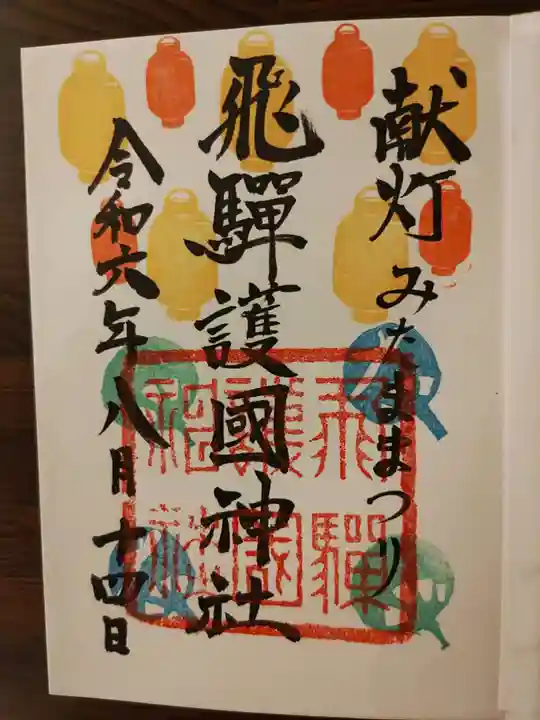 献灯 みたままつり
飛驒護國神社
令和六年八月十四日
飛驒
護國
神社